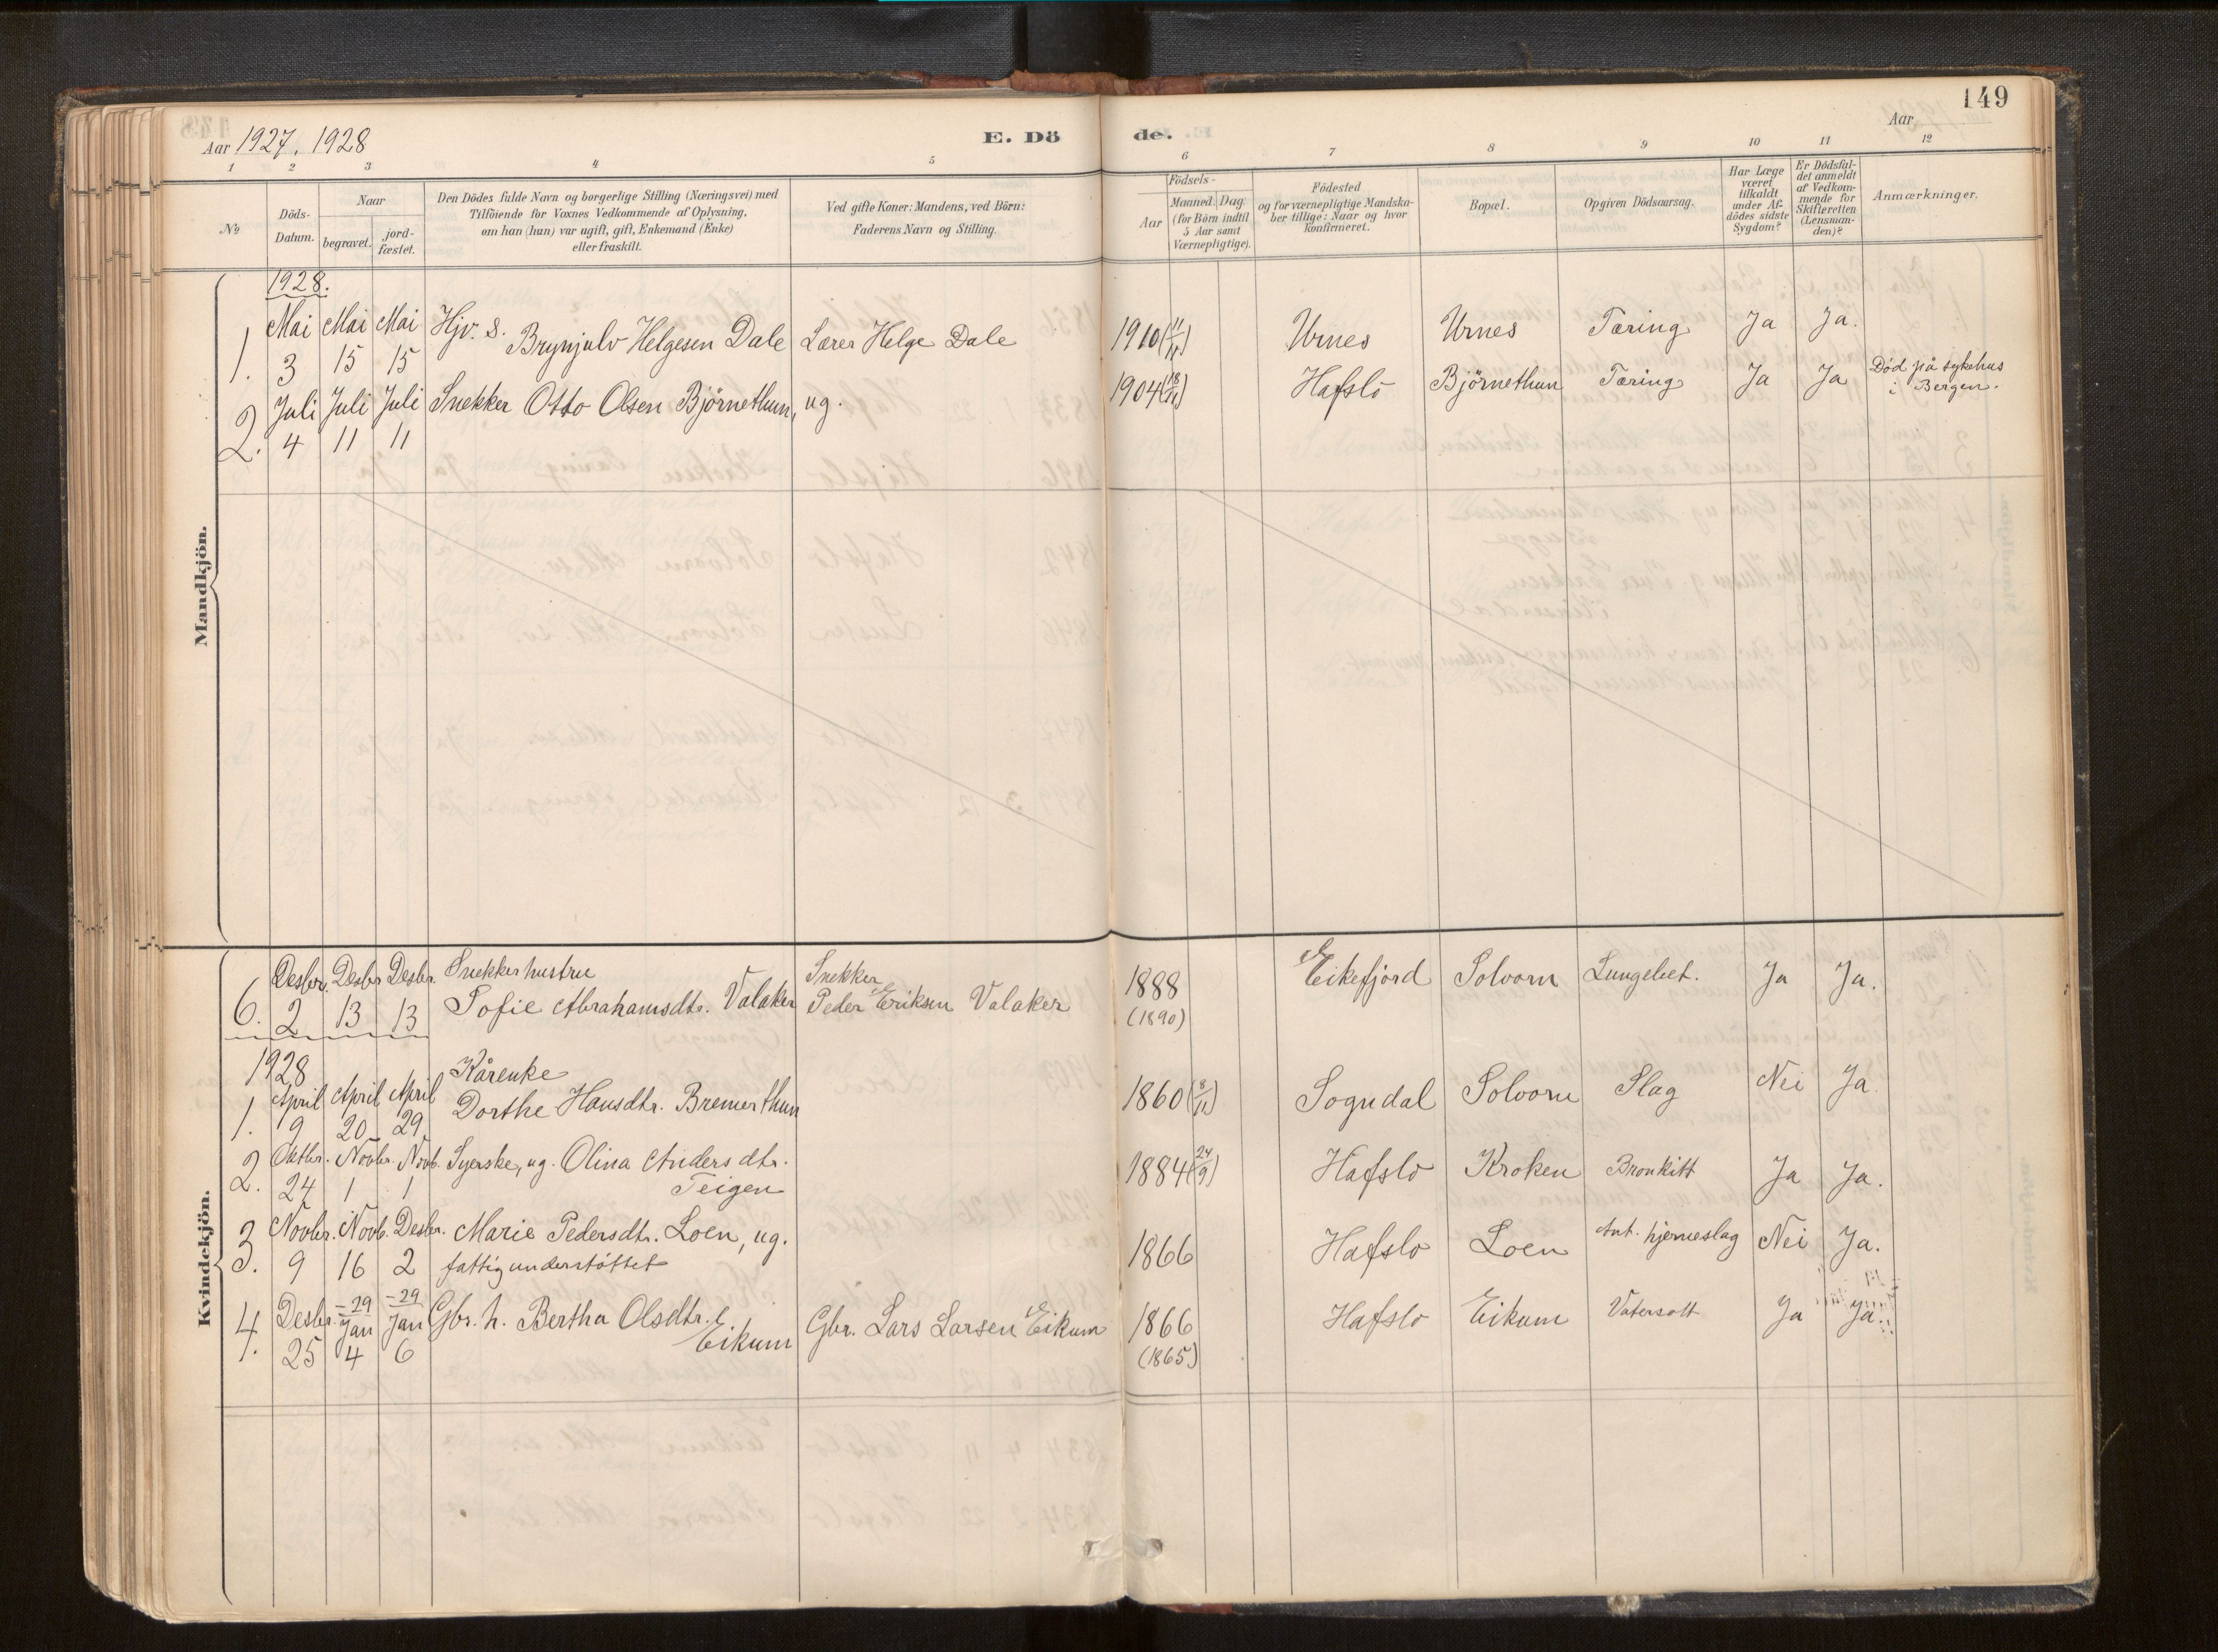 149
Aar 1927. 1928
E. Dö
de.
Aar
1 2 3 4 5 6 7 8 9 10 11 12
№
Döds-
Datum.
Naar
begravet.
jord-
fæstet.
Den Dödes fulde Navn og borgerlige Stilling (Næringsvei) med
Tilföiende for Voxnes Vedkommende af Oplysning,
om han (hun) var ugift, gift, Enkemand (Enke)
eller fraskilt.
Ved gifte Koner: Mandens, ved Börn:
Faderens Navn og Stilling.
Födsels-
Aar
Maaned. Dag.
(for Börn indtil
5 Aar samt
Værnepligtige).
Födested
og for værnepligtige Mandska-
ber tillige: Naar og hvor
konfirmeret.
Bopæl.
Opgiven Dödsaarsag.
Har Læge
været
tilkaldt
under Af-
dödes sidste
Sygdom?
Er Dödsfal-
det anmeldt
af Vedkom-
mende for
Skifteretten
(Lensman-
den)?
Anmærkninger.
Mandkjön.
1928.
Mai Mai Mai Hjv. s.
1. 3 15 15 Brynjulv Helgesen Dale Lærer Helge Dale 1910 Urnes Urnes Tæring Ja Ja.
Juli Juli Juli Snekker Otto Olsen Björnethun, ug. 1904 Hafslo Björnethun Tæring Ja Ja Död på sykehus
i Bergen.
2. 4 11 11
Kvindekjön.
Desbr. Desbr. Desbr. Snekkerhustru Snekker
6. 2 13 13 Sofie Abrahamsdtr. Valaker Peder Eriksen Valaker 1888 Eikefjord Solvorn Lungebet. Ja Ja.
(1890)
1928
Kårenke
April April April
1. 9 20 29 Dorthe Hansdtr. Bremerthun 1860 (8/11) Sogndal Solvorn Slag Nei Ja.
Oktbr. Novbr. Novb. Syerske, ug. Olina Andersdtr.
2. 24 1 1 Teigen 1884 (24/9) Hafslo Kroken Bronkitt Ja Ja.
Novbr. Novb. Desbr. Marie Pedersdtr. Loen, ug.
3. 9 16 2 fattigunderstöttet 1866 Hafslo Loen Ant. hjerneslag Nei Ja.
Desbr. -29 Jan -29 Jan Gbr. h. Bertha Olsdtr.
4. 25 4 6 Eikum Gbr. Lars Larsen Eikum 1866 Hafslo Eikum Vatersott Ja Ja.
(1865)